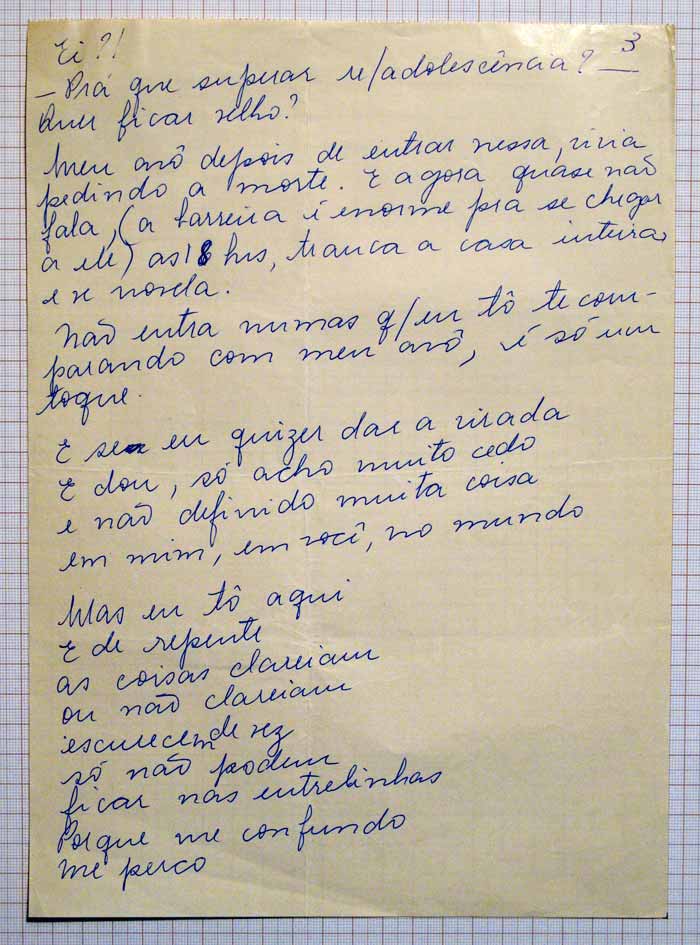 Ei?!
3
- Prá que superar s/adolescência?
Quer ficar velho?
Meu avô depois de entrar nessa, vivia
pedindo a morte. E agora quase não
fala, (a barreira é enorme pra se chegar
a ele) as 18 hrs, tranca a casa inteira
e se novela.
Não entra numas q/eu tô te com-
parando com meu avô, é só um
toque.
E se eu quizer dar a virada
E dou, só acho muito cedo
e não definido muita coisa
em mim, em você, no mundo
Mas eu tô aqui
E de repente
as coisas clareiam
ou não clareiam
escurecem de vez
só não podem
ficar nas entrelinhas
Porque me confundo
me perco